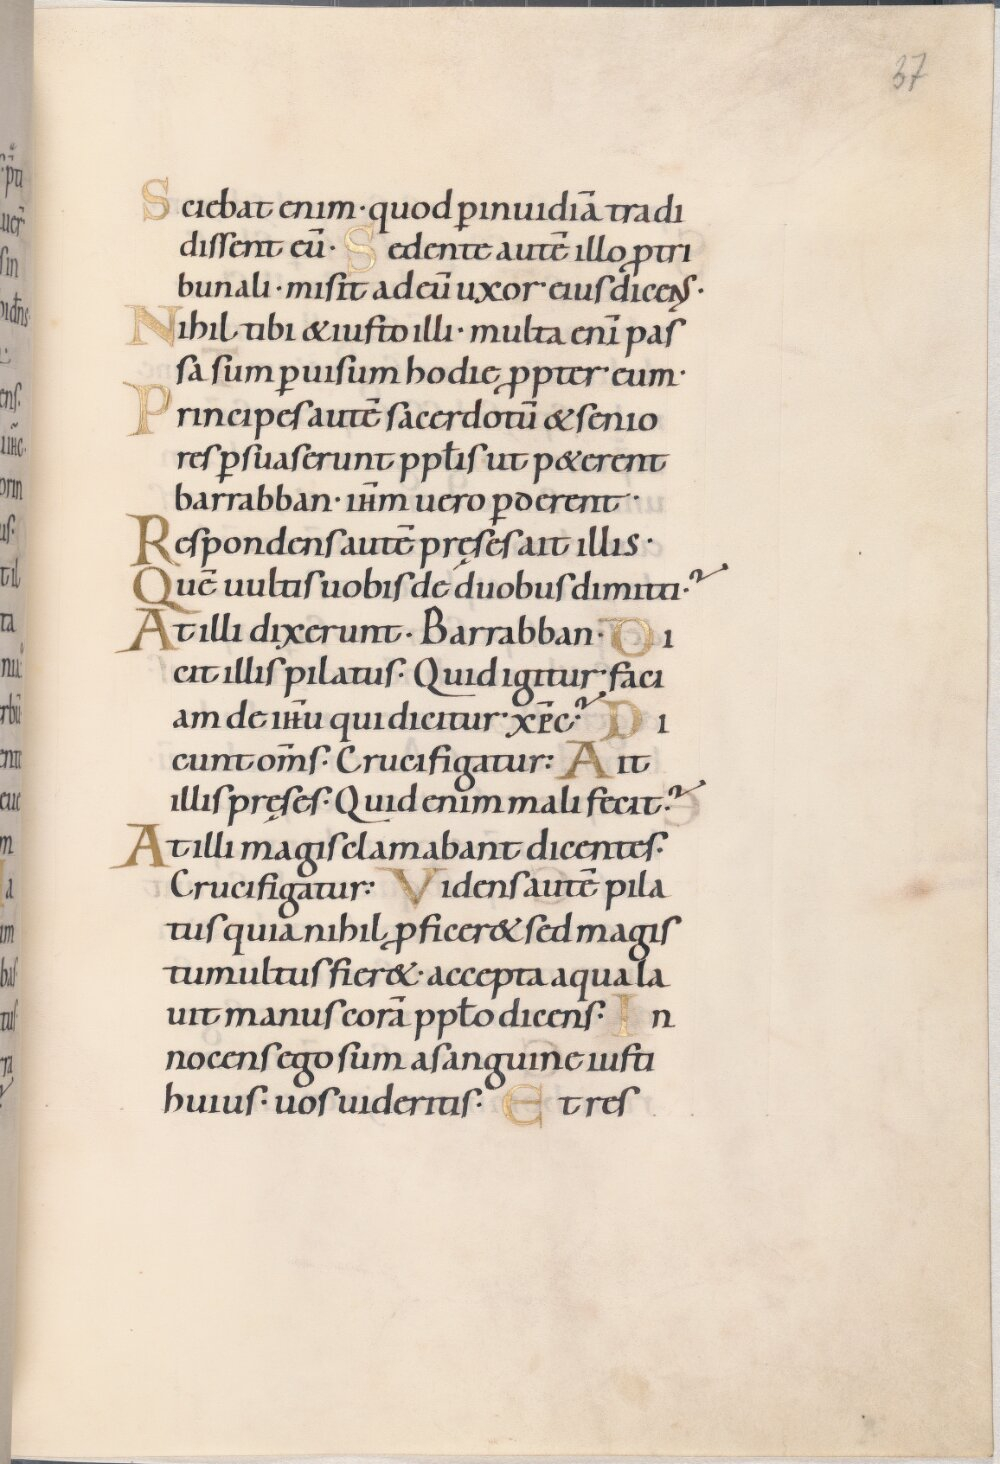 37
Sciebat enim· quod p̄inuidiā tradi
dissent eū· Sedente autē illo ꝓtri
bunali· misit ad eū uxor eius dicens·
Nihil tibi & iusto illi· multa enī pas
sa sum ꝑ uisum hodie ꝓpter eum·
Principes autē sacerdotū & senio
res ꝑsuaserunt ppłis ut p&erent
barrabban· ih̄m uero ꝑderent·
Respondens autē pręses ait illis·
Quē uultis uobis de duobus dimitti·?
At illi dixerunt· Barrabban· Di
cit illis pilatus· Quid igitur faci
am de ih̄u qui dicitur xp̄c·? Di
cunt om̄s· Crucifigatur: Ait
illis pręses· Quid enim mali fecit·?
At illi magis clamabant dicentes·
Crucifigatur: Videns autē pila
tus quia nihil ꝓficer& sed magis
tumultus fier&· accepta aqua la
uit manus corā ppło dicens: In
nocens ego sum a sanguine iusti
huius· uos uideritis· Et res